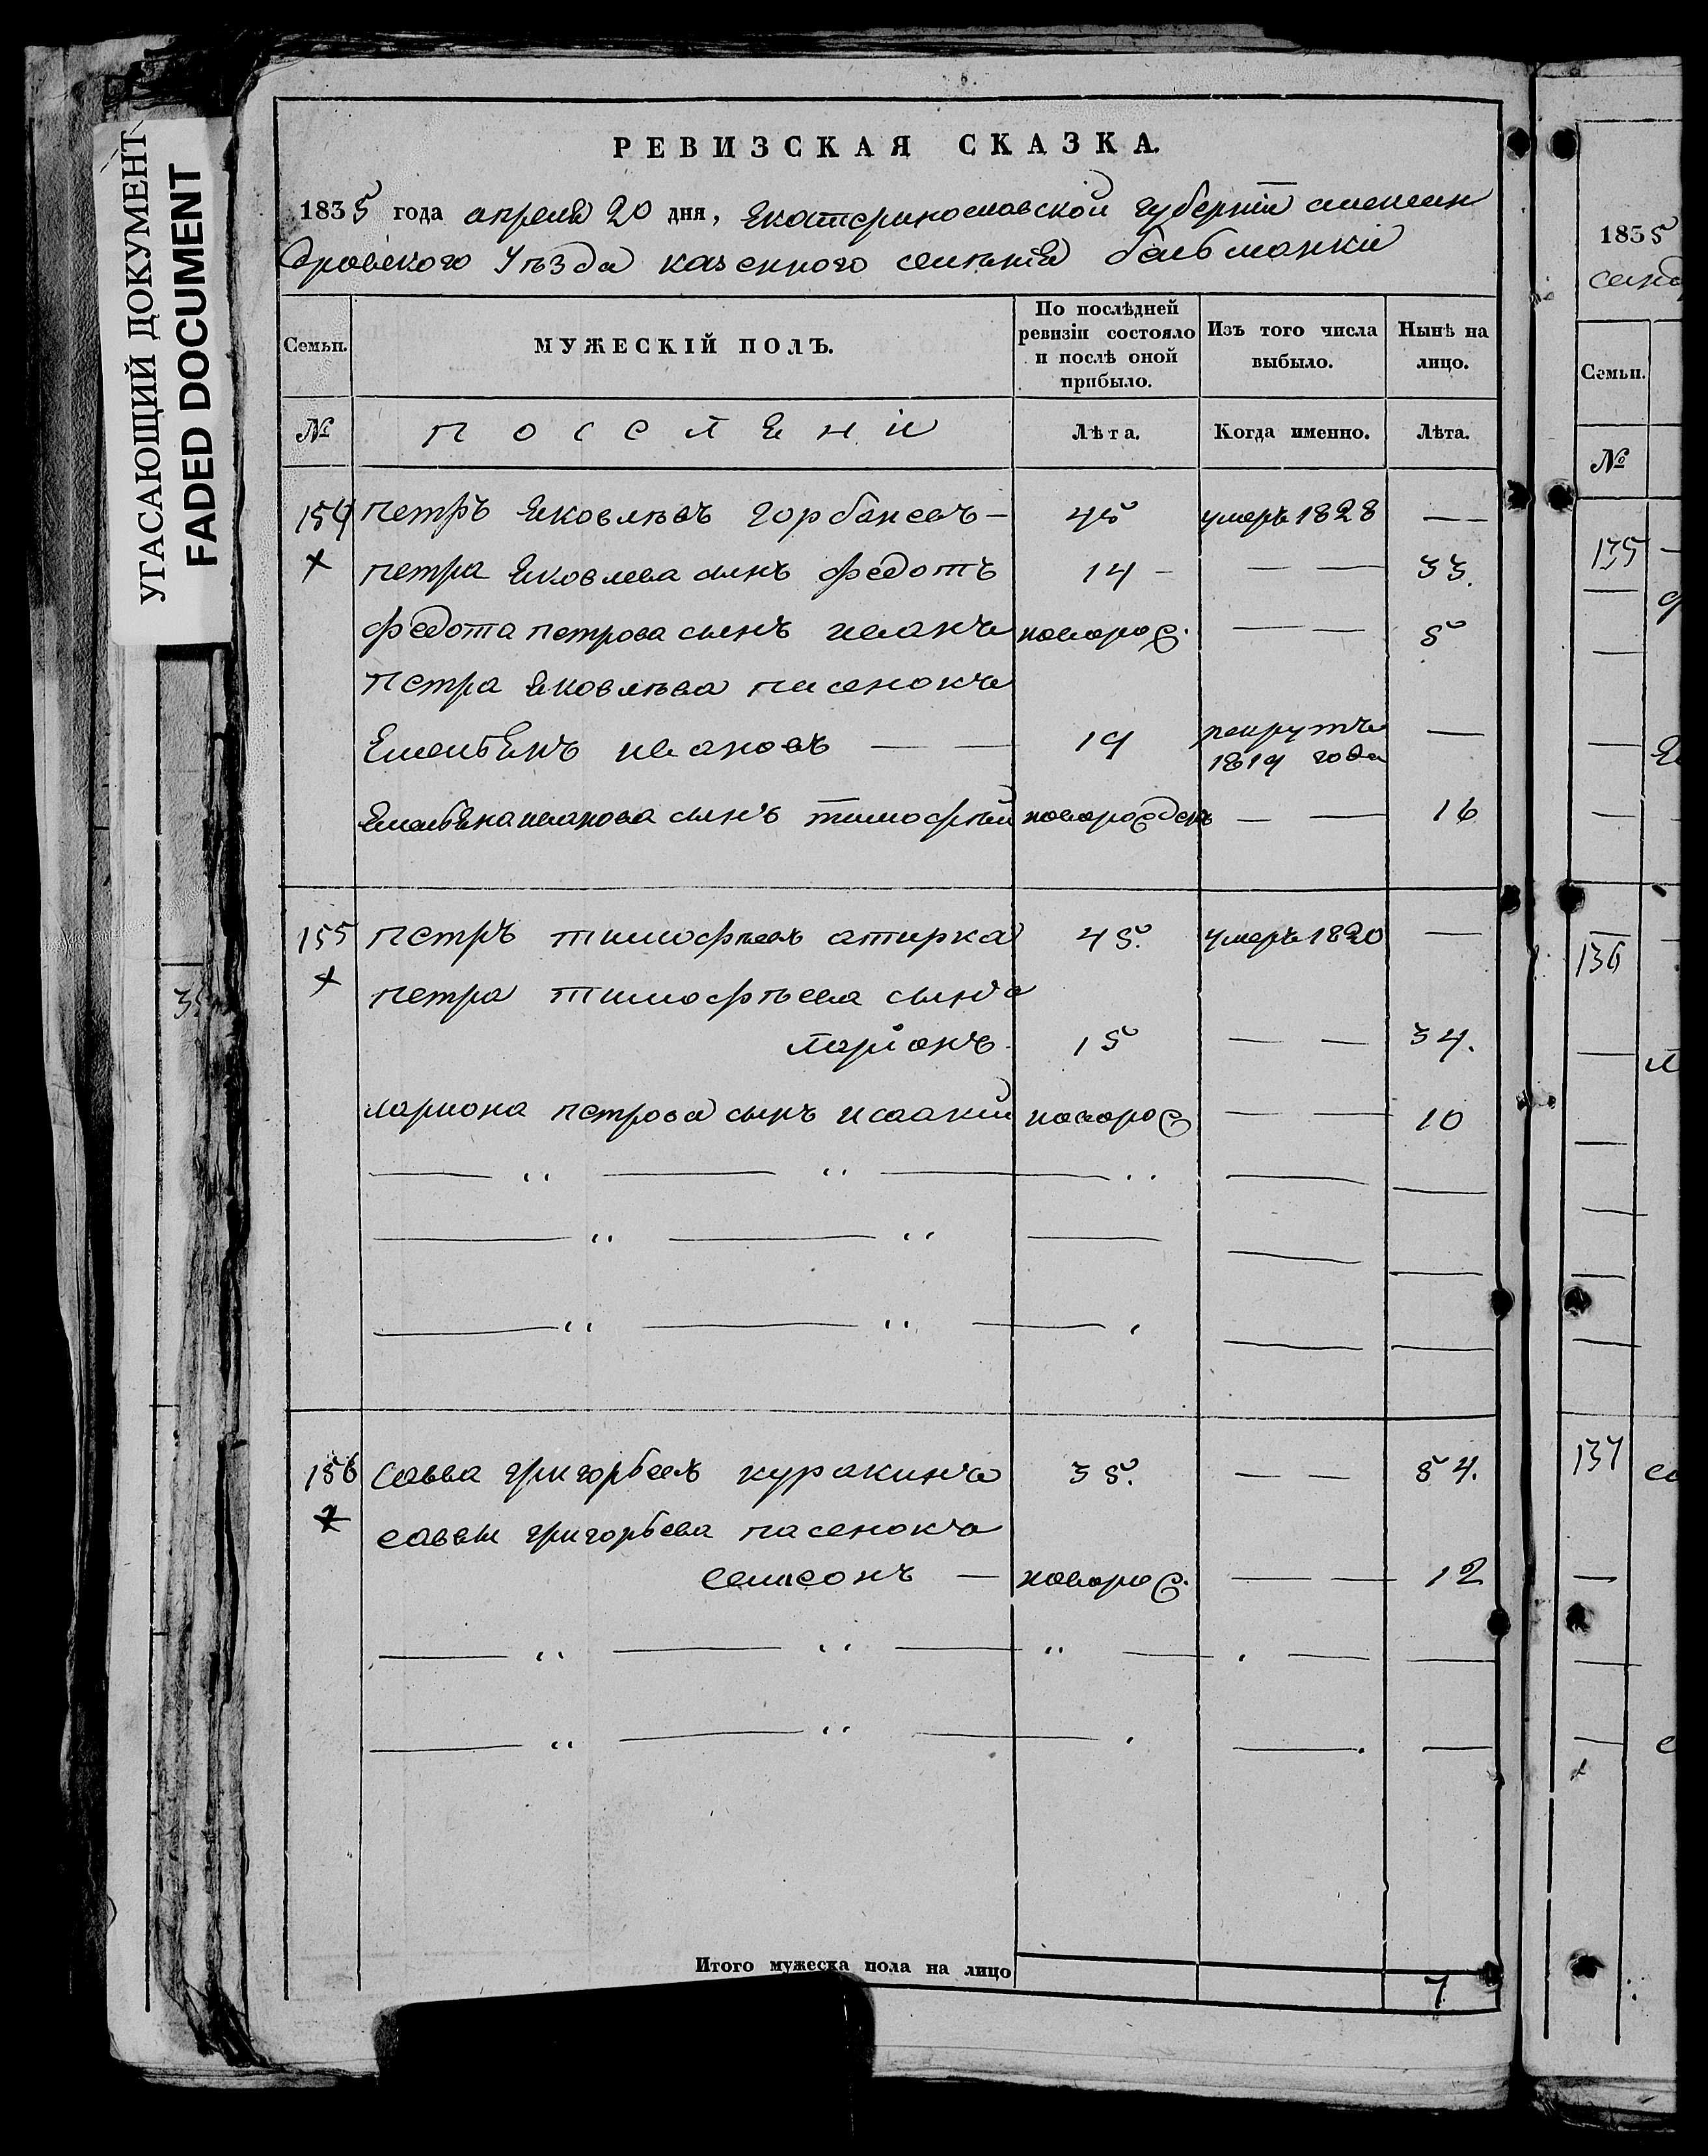 УГАСАЮЩИЙ ДОКУМЕНТ
FADED DOCUMENT
РЕВИЗСКАЯ СКАЗКА.
1835 года апреля 20 дня, Екатеринославской губернiи алексан
дровского уѣзда казенного селенiя бальманки
Семьи.
МУЖЕСКIЙ ПОЛЪ.
По послѣдней ревизiи состояло и послѣ оной прибыло.
Изъ того числа выбыло.
Нынѣ на лицо.
№
поселяни
Лѣта.
Когда именно.
Лѣта.
154 петръ яковлѣвъ горбаневъ — 45 умеръ 1828 — —
х петра яковлева сынъ федотъ 14 — — — 33.
федота петрова сынъ иванъ новорож. — — 5
петра яковлѣва пасенокъ
Емельянъ ивановъ — — 19 рекрутъ 1819 года —
Емельяна иванова сынъ тимофѣй новорожденъ — — 16
155 петръ тимофѣевъ 45. умеръ 1820 —
х петра тимофѣева сынъ
ларiонъ 15 — — 34.
лариона петрова сынъ исаакий новорож — — 10
156 савва григорьевъ куракинъ 35. — — 54.
х саввы григорьева пасенокъ
самсонъ — новорож. — — 12
Итого мужеска пола на лицо 7
1835
санд
Семьи.
№
135
136
137